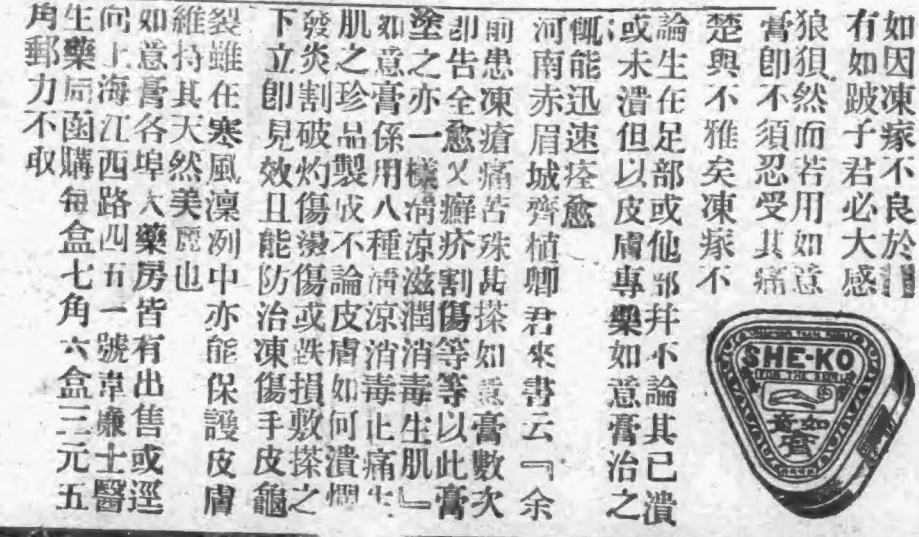 如因凍瘃不良於
有如跛子君必大感
狼狽然而若用如意
膏卽不須忍受其痛
楚與不雅矣凍瘃不
論生在足部或他部幷不論其已潰
或未潰但以皮膚專藥如意膏治之
輒能迅速痊愈
河南赤眉城齊植卿君來書云『余
前患凍瘡痛苦殊甚搽如意膏數次
卽告全愈又癬疥割傷等等以此膏
塗之亦一樣淸涼滋潤消毒生肌』
如意膏係用八種淸涼消毒止痛生
肌之珍品製成不論皮膚如何潰爛
發炎割破灼傷湯傷或跌損敷搽之
下立卽見效且能防治凍傷手皮龜
裂雖在寒風凜冽中亦能保護皮膚
維持其天然美麗也
如意膏各埠大藥房皆有出售或逕
向上海江西路四五一號韋廉士醫
生藥局函購每盒七角六盒三元五
角郵力不收
SHE-KO
FOR THE SKIN
如意
膏